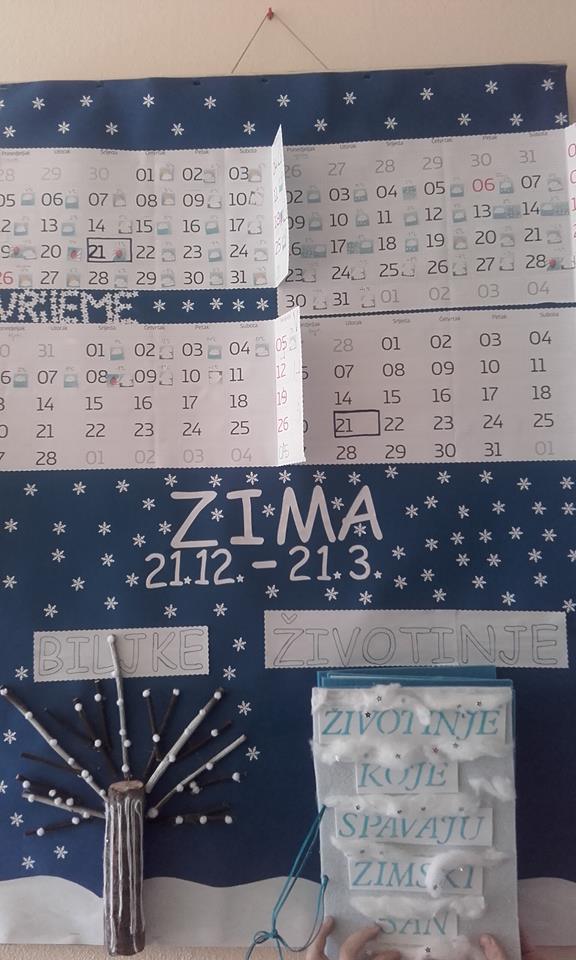 Ponedjeljak Utorak Srijeda Četvrtak Petak Subota
28 29 30 01 02 03
05 06 07 08 09 10
12 13 14 15 16 17
19 20 21 22 23 24
26 27 28 29 30 31
Utorak Srijeda Četvrtak Petak Subota
26 27 28 29 30 31
02 03 04 05 06 07
09 10 11 12 13 14
16 17 18 19 20 21
23 24 25 26 27 28
30 31 01 02 03 04
VRIJEME
Ponedjeljak Utorak Srijeda Četvrtak Petak Subota
30 31 01 02 03 04 05
6 07 08 09 10 11 12
13 14 15 16 17 18 19
20 21 22 23 24 25 26
27 28 01 02 03 04 05
Utorak Srijeda Četvrtak Petak Subota
28 01 02 03 04
07 08 09 10 11
14 15 16 17 18
21 22 23 24 25
28 29 30 31 01
ZIMA
21.12. - 21.3.
BILJKE
ŽIVOTINJE
ŽIVOTINJE
KOJE
SPAVAJU
ZIMSKI
SAN